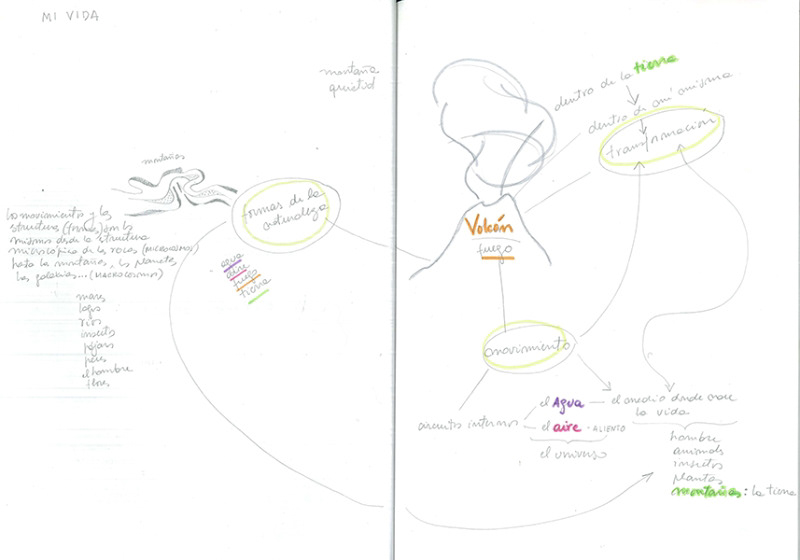 MI VIDA
montaña
quietud
montañas
formas de la
naturaleza
los movimientos y las
structura (formas) son los
mismos desde la structura
microscópica de las rocas (MICROCOSMOS)
hasta la montañas, los planetas,
las galaxias... (MACROCOSMOS)
agua
aire
fuego
tierra
mares
lagos
rios
insectos
pájaros
peces
el hombre
flores
dentro de la tierra
dentro de mí misma
transformación
Volcán
fuego
movimiento
circuitos internos
el Agua — el medio donde nace
la vida
el aire · ALIENTO
el universo
hombre
animals
insectos
plantas
montañas: la tierra